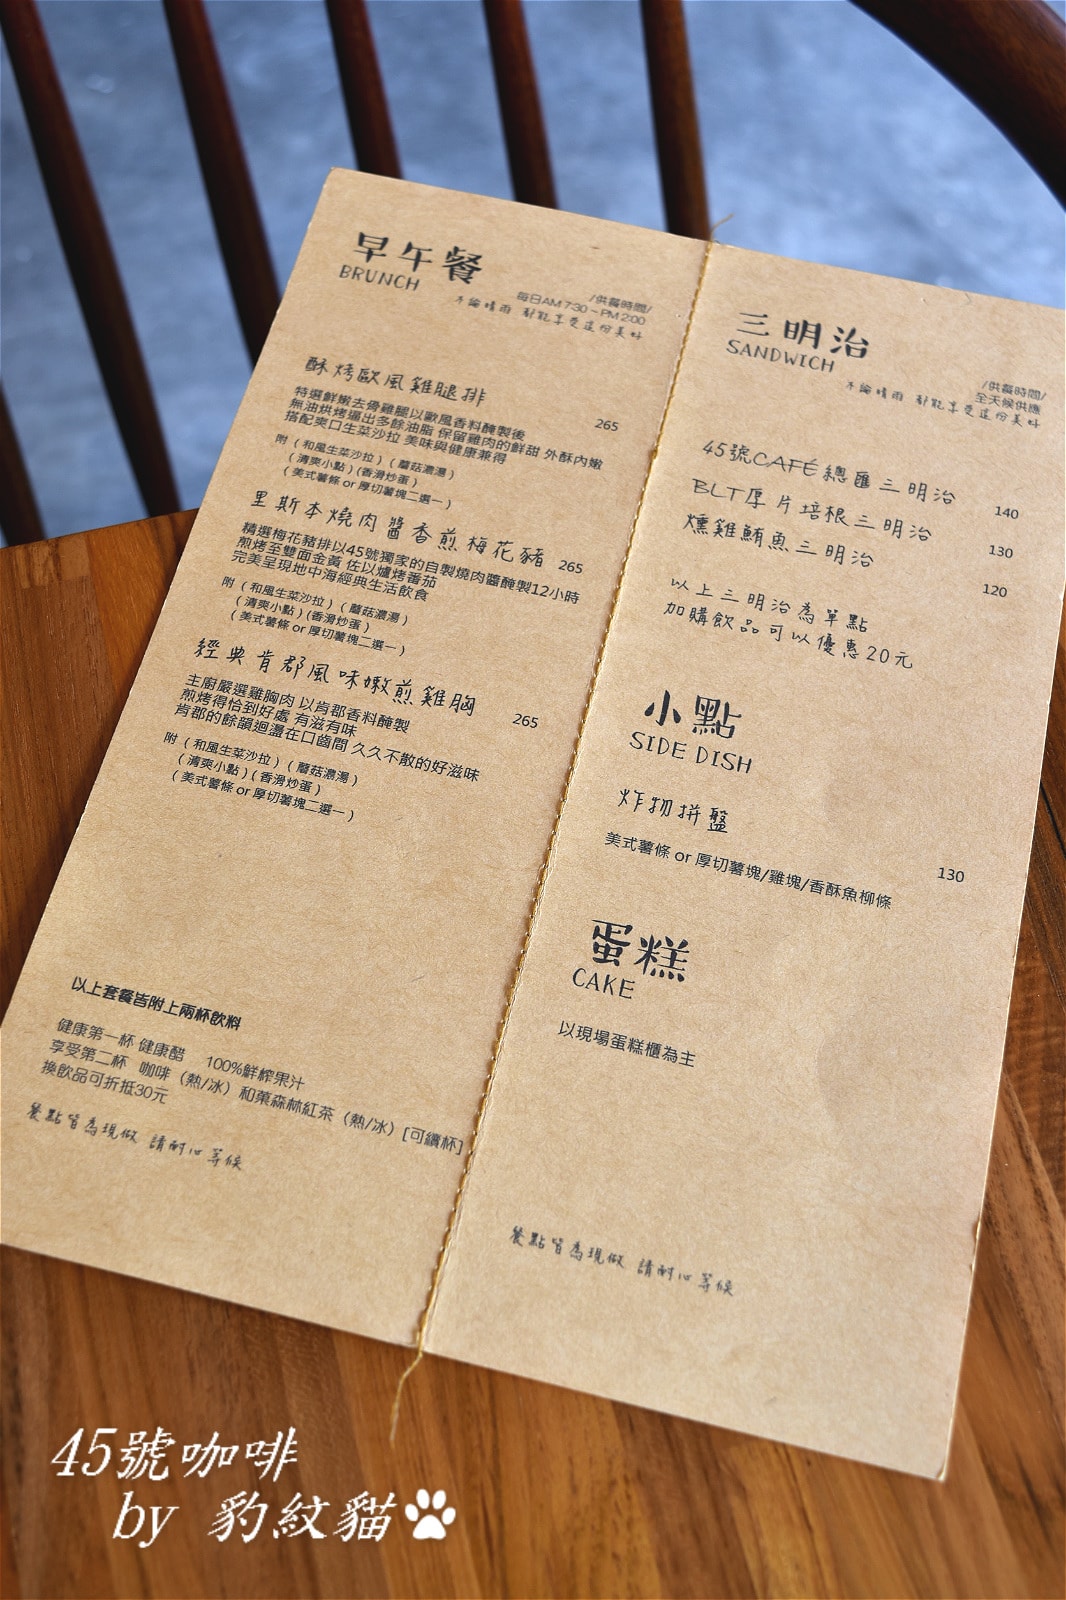 早午餐
BRUNCH
/供餐時間/
每日AM 7:30~PM 2:00
不論晴雨 都能享受這份美好
酥烤歐風雞腿排
265
特選鮮嫩去骨雞腿以歐風香料醃製後
無油烘烤逼出多餘油脂 保留雞肉的鮮甜 外酥內嫩
搭配爽口生菜沙拉 美味與健康兼得
附 （和風生菜沙拉）（蘑菇濃湯）
（清爽小點）(香滑炒蛋）
（美式薯條 or 厚切薯塊二選一）
里斯本燒肉醬香煎梅花豬 265
精選梅花豬排以45號獨家的自製燒肉醬醃製12小時
煎烤至雙面金黃 佐以爐烤番茄
完美呈現地中海經典生活飲食
附 （和風生菜沙拉）（蘑菇濃湯）
（清爽小點）(香滑炒蛋）
（美式薯條 or 厚切薯塊二選一）
經典肯郡風味嫩煎雞胸 265
主廚嚴選雞胸肉 以肯郡香料醃製
煎烤得恰到好處 有滋有味
肯郡的餘韻迴盪在口齒間 久久不散的好滋味
附 （和風生菜沙拉）（蘑菇濃湯）
（清爽小點）(香滑炒蛋）
（美式薯條 or 厚切薯塊二選一）
以上套餐皆附上兩杯飲料
健康第一杯 健康醋 100%鮮榨果汁
享受第二杯 咖啡（熱/冰）和菓森林紅茶（熱/冰）[可續杯]
換飲品可折抵30元
餐點皆為現做 請耐心等候
三明治
SANDWICH
/供餐時間/
全天候供應
不論晴雨 都能享受這份美好
45號CAFÉ總匯三明治 140
BLT厚片培根三明治 130
燻雞鮪魚三明治 120
以上三明治為單點
加購飲品可以優惠20元
小點
SIDE DISH
炸物拼盤
美式薯條 or 厚切薯塊/雞塊/香酥魚柳條 130
蛋糕
CAKE
以現場蛋糕櫃為主
餐點皆為現做 請耐心等候
45號咖啡
by 豹紋貓